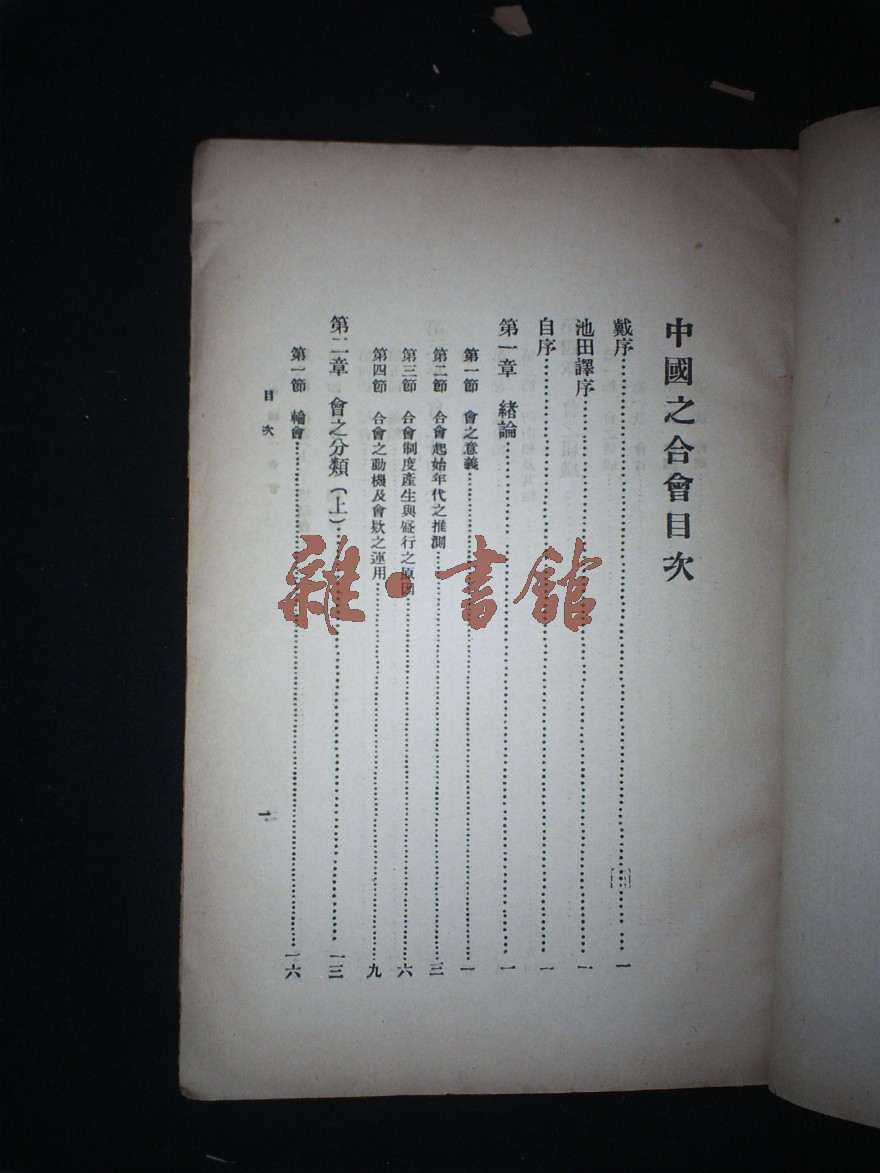 中國之合會目次
戴序……一
池田譯序……一
自序……一
第一章 緒論……一
第一節 會之意義……一
第二節 合會起始年代之推測……三
第三節 合會制度產生與盛行之原因……六
第四節 合會之動機及會欵之運用……九
第二章 會之分類(上)……一三
第一節 輪會……一六
目次
一
雜·書館